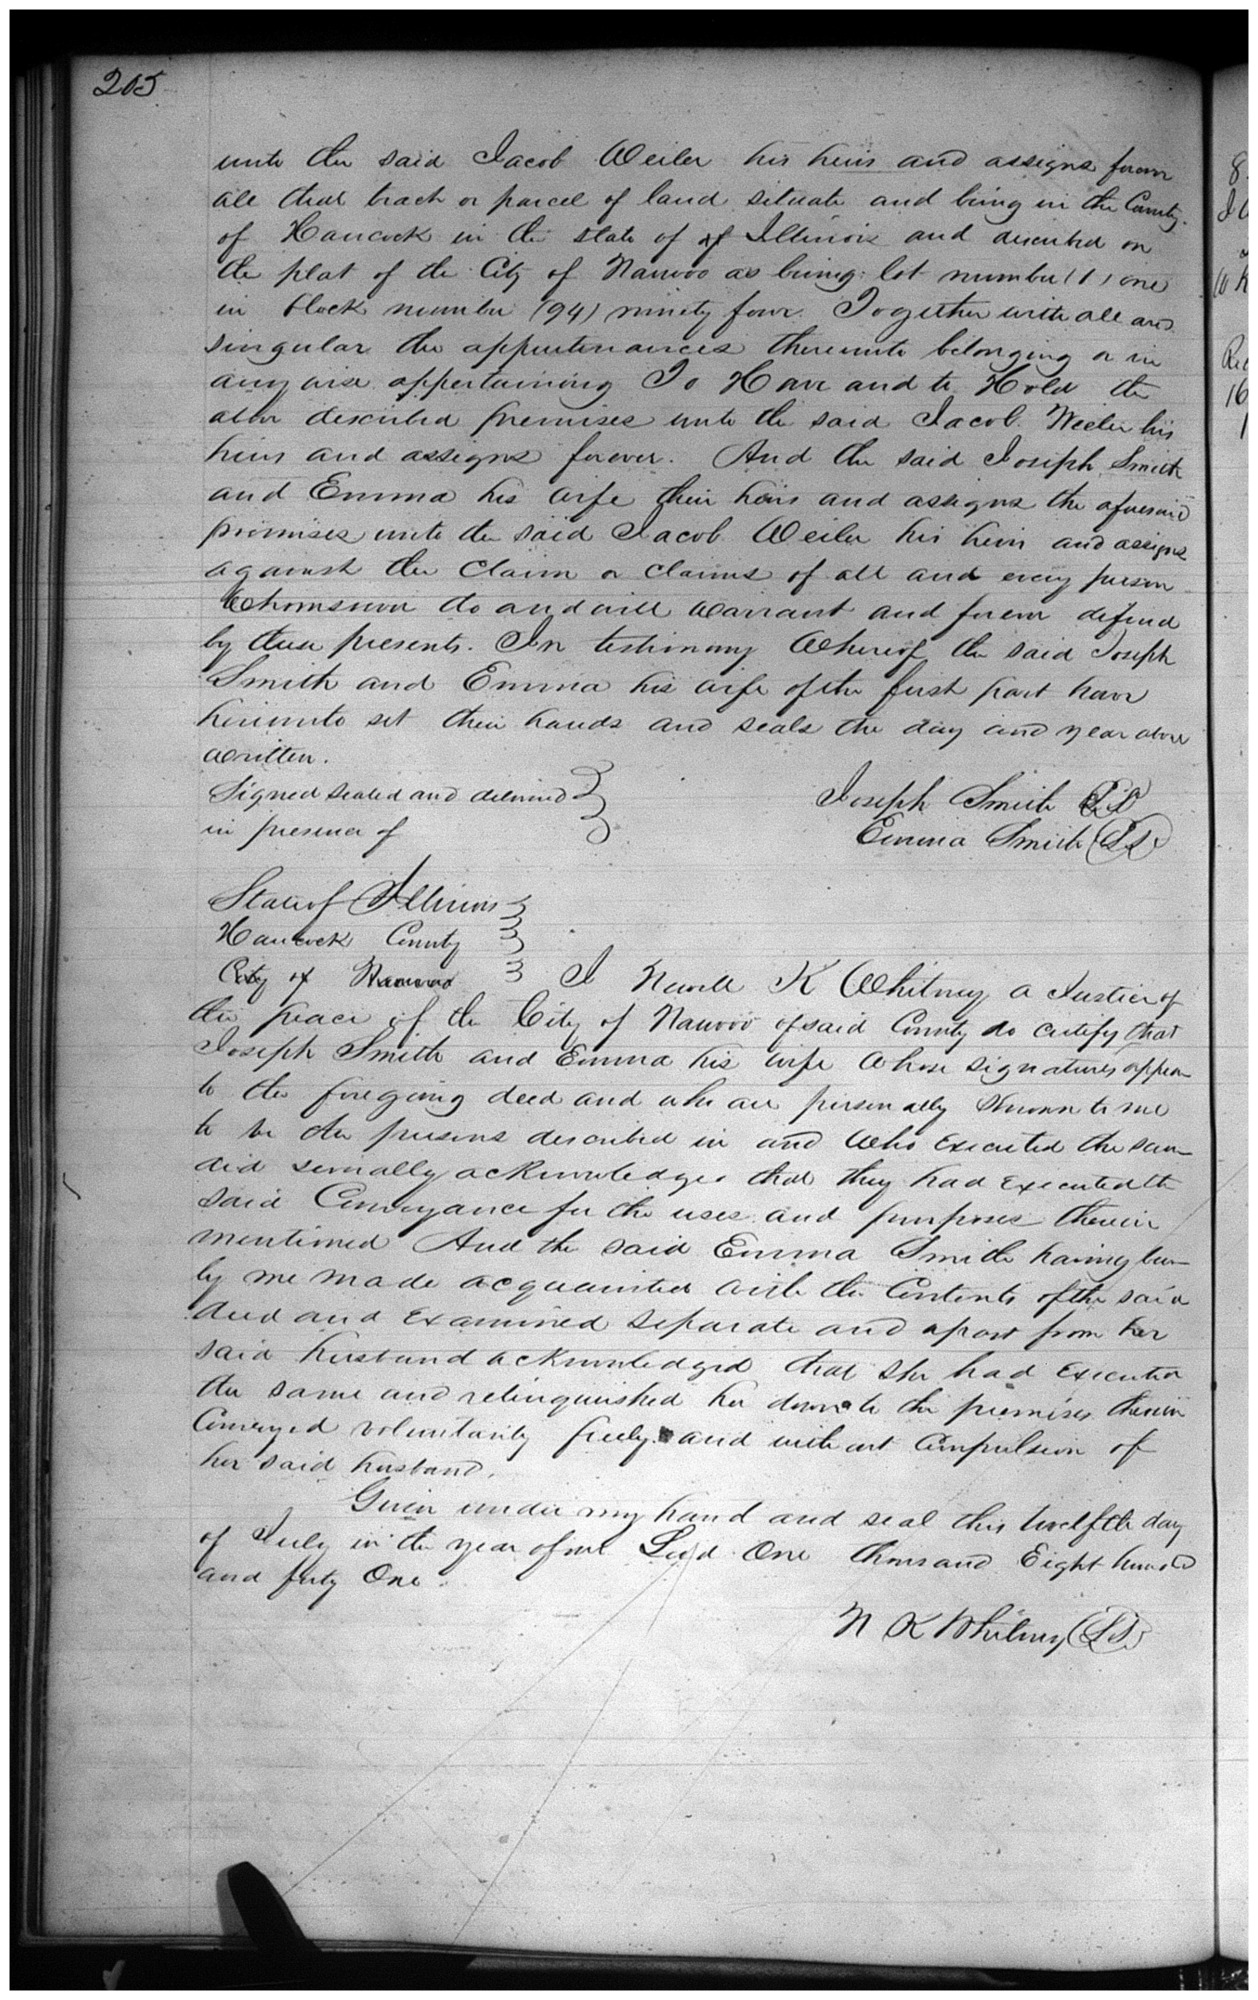 205
unto the said Jacob Weiler his heirs and assigns forever
all that tract or parcel of land situate and being in the County
of Hancock in the state of of Illinois and described on
the plat of the City of Nauvoo as being lot number (1) one
in block number (94) ninety four. Together with all and
singular the appurtenances thereunto belonging or in
any wise appertaining To Have and to Hold the
above described premises unto the said Jacob Weiler his
heirs and assigns forever. And the said Joseph Smith
and Emma his wife their heirs and assigns the aforesaid
premises unto the said Jacob Weiler his heirs and assigns
against the claim or claims of all and every person
Whomsoever do and will warrant and forever defend
by these presents. In testimony Whereof the said Joseph
Smith and Emma his wife of the first part have
hereunto set their hands and seals the day and year above
written.
Signed sealed and delivered
in presence of
Joseph Smith (LS)
Emma Smith (LS)
State of Illinois
Hancock County
City of Nauvoo } I Newell K Whitney a Justice of
the peace of the City of Nauvoo of said County do certify that
Joseph Smith and Emma his wife whose signatures appear
to the foregoing deed and who are personally known to me
to be the persons described in and who executed the same
did severally acknowledge that they had executed the
said Conveyance for the uses and purposes therein
mentioned And the said Emma Smith having been
by me made acquainted with the Contents of the said
deed and examined separate and apart from her
said husband acknowledged that she had executed
the same and relinquished her dower to the premises therein
Conveyed voluntarily freely and without Compulsion of
her said husband.
Given under my hand and seal this twelfth day
of July in the year of our Lord One thousand Eight hundred
and forty One.
N K Whitney (LS)